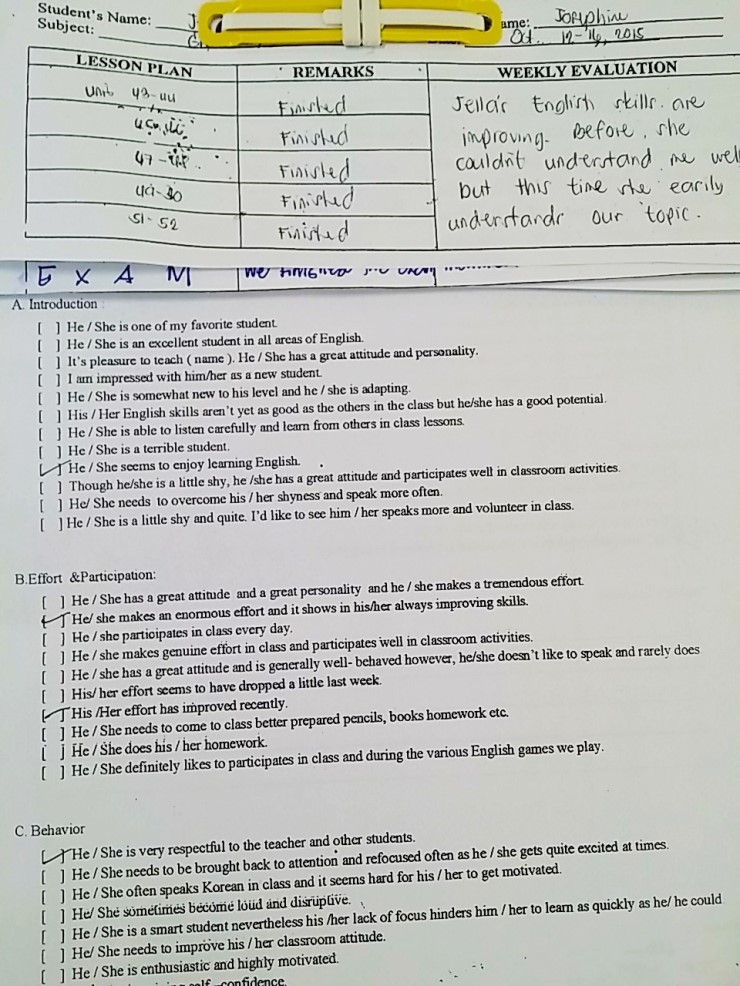 Student's Name: J
ame: Josephine
Subject: G
Oct. 12-16, 2015
LESSON PLAN REMARKS WEEKLY EVALUATION
Unit 43-44 Finished
Finished
47- Finished
Finished
51-52 Finished
Jella's English skills are
improving. Before, she
couldn't understand me well
but this time she easily
understands our topic.
E X A M We finished the
A. Introduction :
[ ] He / She is one of my favorite student.
[ ] He / She is an excellent student in all areas of English.
[ ] It's pleasure to teach ( name ). He / She has a great attitude and personality.
[ ] I am impressed with him/her as a new student.
[ ] He / She is somewhat new to his level and he / she is adapting.
[ ] His / Her English skills aren't yet as good as the others in the class but he/she has a good potential.
[ ] He / She is able to listen carefully and learn from others in class lessons.
[ ] He / She is a terrible student.
[✓] He / She seems to enjoy learning English.
[ ] Though he/she is a little shy, he /she has a great attitude and participates well in classroom activities.
[ ] He/ She needs to overcome his / her shyness and speak more often.
[ ] He / She is a little shy and quite. I'd like to see him / her speaks more and volunteer in class.
B.Effort &Participation:
[ ] He / She has a great attitude and a great personality and he / she makes a tremendous effort.
[✓] He/ she makes an enormous effort and it shows in his/her always improving skills.
[ ] He / she participates in class every day.
[ ] He / she makes genuine effort in class and participates well in classroom activities.
[ ] He / she has a great attitude and is generally well- behaved however, he/she doesn't like to speak and rarely does
[ ] His/ her effort seems to have dropped a little last week.
[✓] His /Her effort has improved recently.
[ ] He / She needs to come to class better prepared pencils, books homework etc.
[ ] He / She does his / her homework.
[ ] He / She definitely likes to participates in class and during the various English games we play.
C. Behavior
[✓] He / She is very respectful to the teacher and other students.
[ ] He / She needs to be brought back to attention and refocused often as he / she gets quite excited at times.
[ ] He / She often speaks Korean in class and it seems hard for his / her to get motivated.
[ ] He/ She sometimes become loud and disruptive.
[ ] He / She is a smart student nevertheless his /her lack of focus hinders him / her to learn as quickly as he/ he could
[ ] He/ She needs to improve his / her classroom attitude.
[ ] He / She is enthusiastic and highly motivated.
self -confidence.